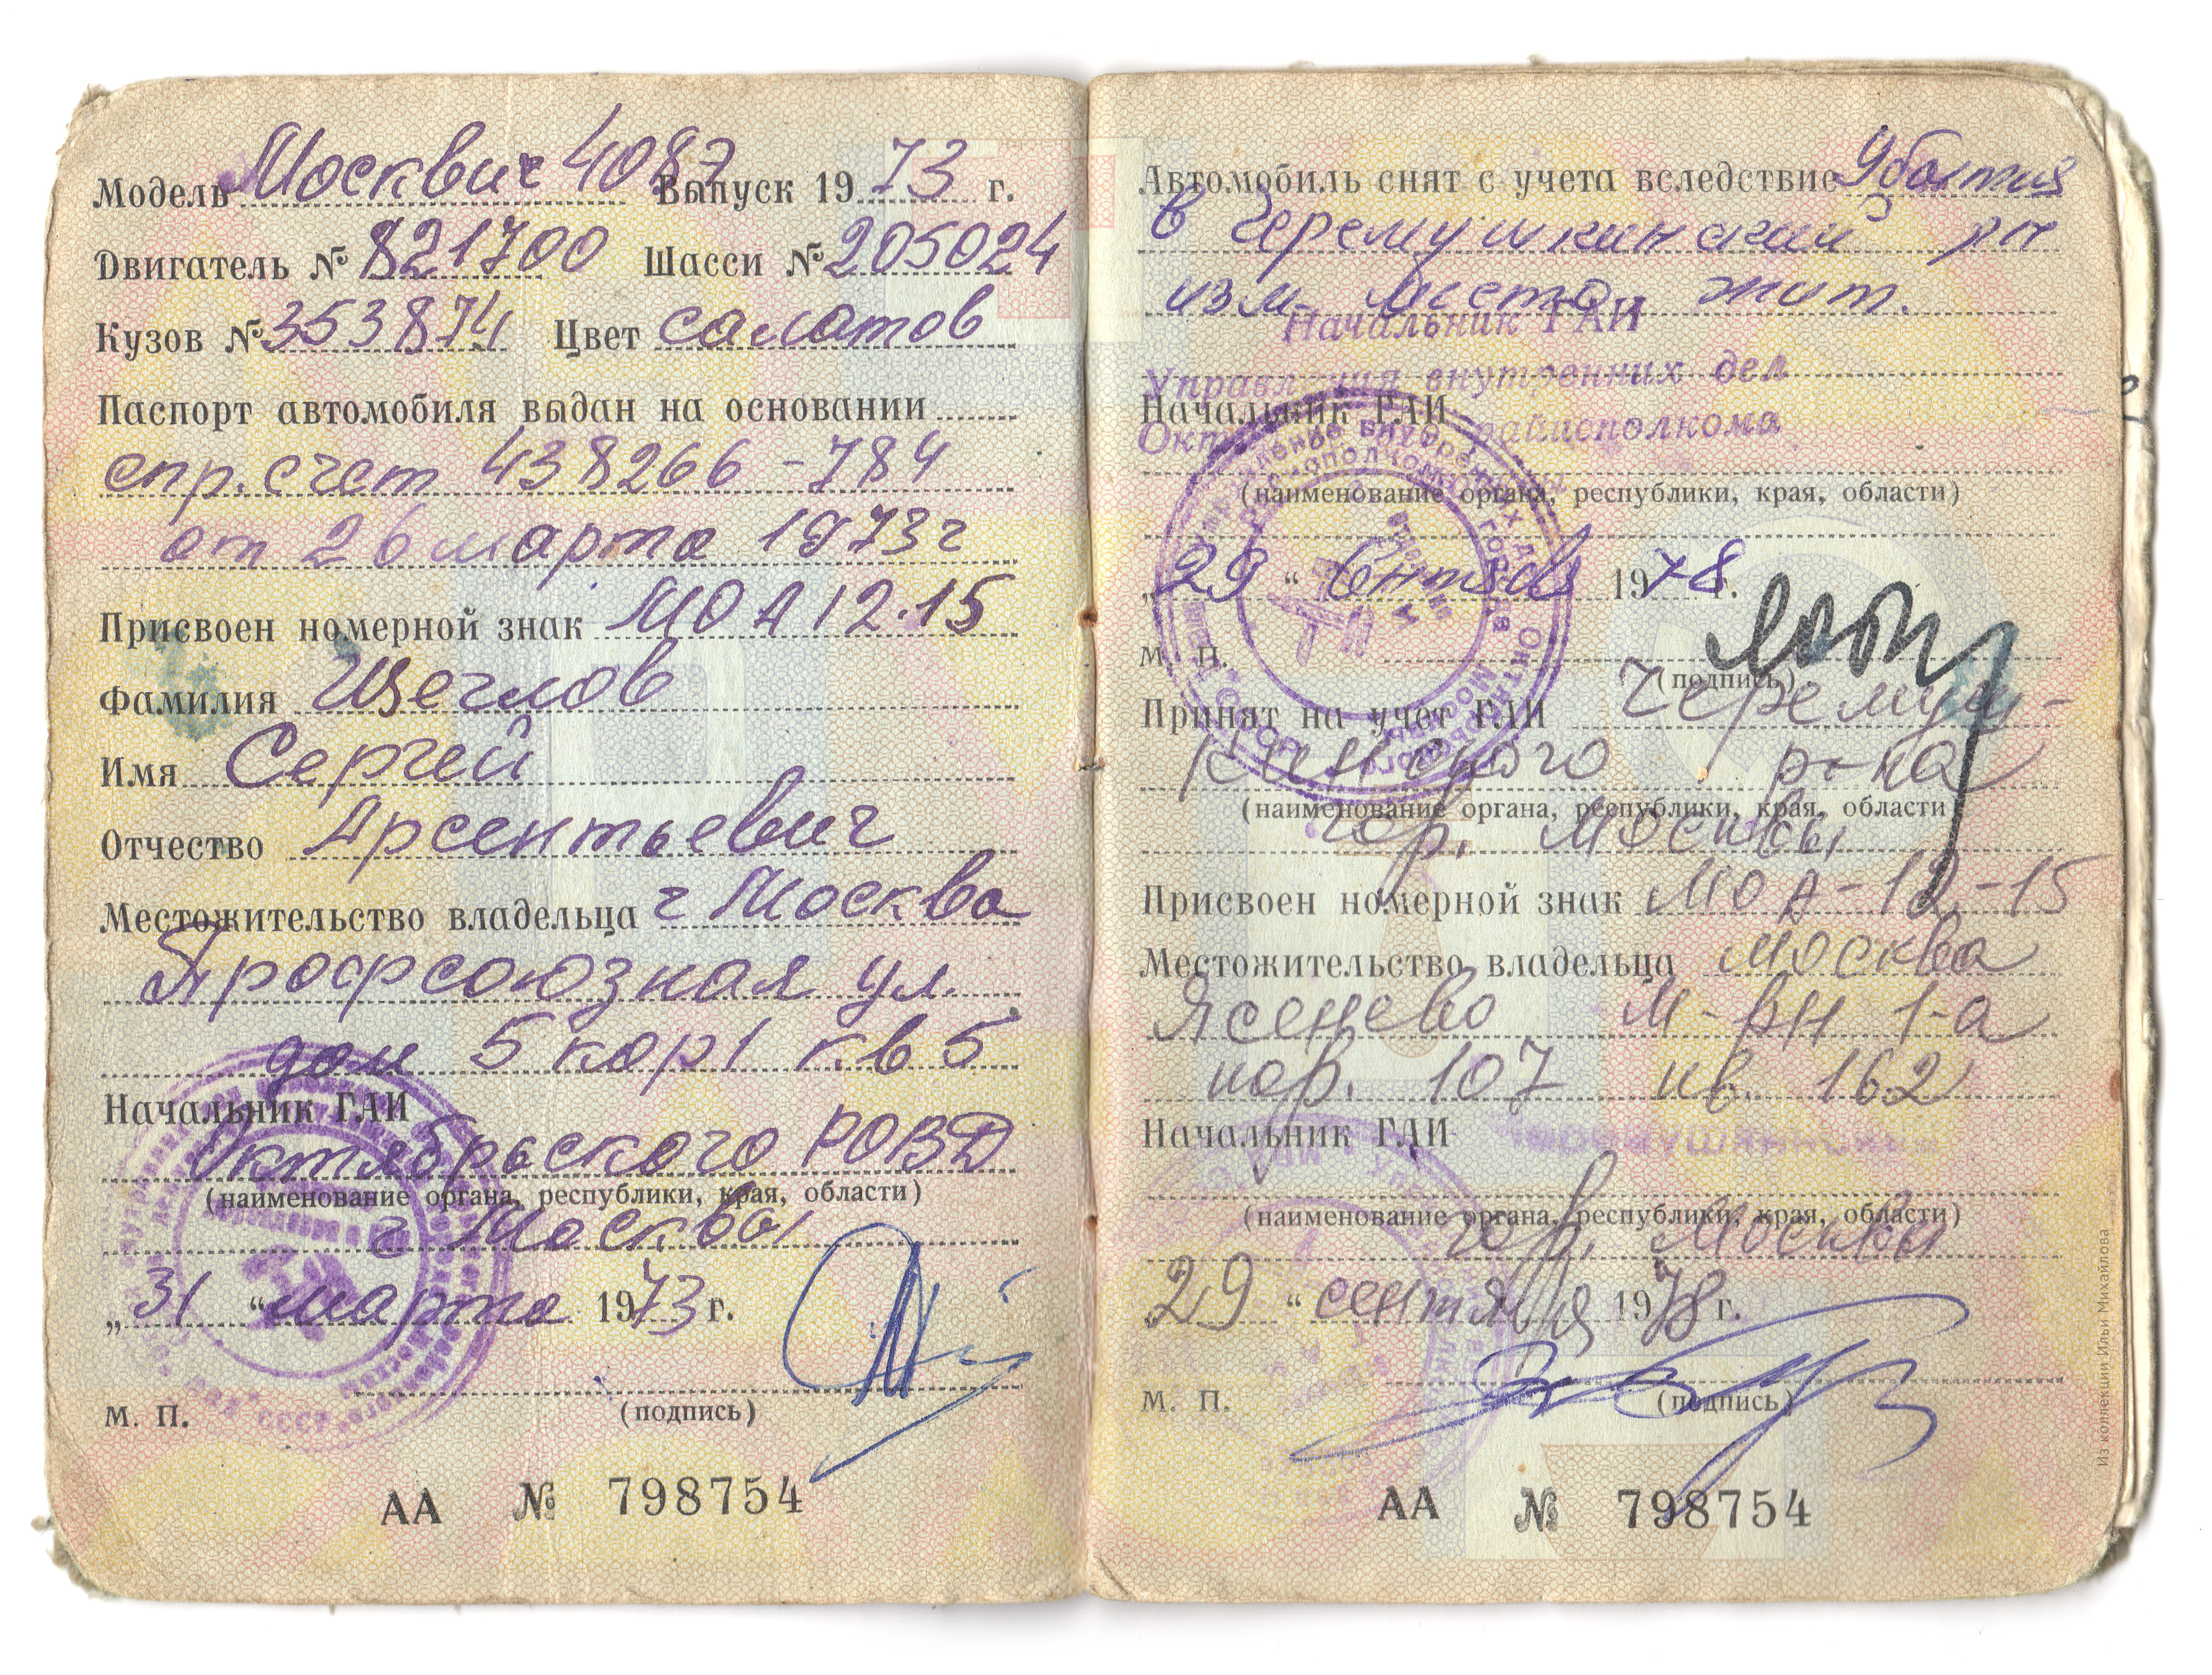 Модель Москвич 408э Выпуск 1973 г.
Двигатель № 821700 Шасси № 205024
Кузов № 353874 Цвет салатов
Паспорт автомобиля выдан на основании
спр. счет 438266-784
от 26 марта 1973 г
Присвоен номерной знак МОА 12-15
Фамилия Щеглов
Имя Сергей
Отчество Арсентьевич
Местожительство владельца г Москва
Профсоюзная ул.
дом 5 кор 1 кв 5
Начальник ГАИ
Октябрьского РОВД
(наименование органа, республики, края, области)
г Москвы
„31“ марта 1973 г.
М. П. (подпись)
АА № 798754
Автомобиль снят с учета вследствие убытия
в Черемушкинский рн
изм. места жит.
Начальник ГАИ
Управления внутренних дел
Начальник ГАИ
райисполкома
(наименование органа, республики, края, области)
„29“ сентяб 1978 г.
М. П.
(подпись)
Принят на учет ГАИ Черемуш-
кинского р-на
(наименование органа, республики, края, области)
гор. Москвы
Присвоен номерной знак МОА-12-15
Местожительство владельца Москва
Ясенево м-рн 1-а
кор. 107 кв. 162
Начальник ГАИ
(наименование органа, республики, края, области)
гор. Москвы
29 “ сентября 1978 г.
М. П. (подпись)
АА № 798754
Из коллекции Ильи Михайлова